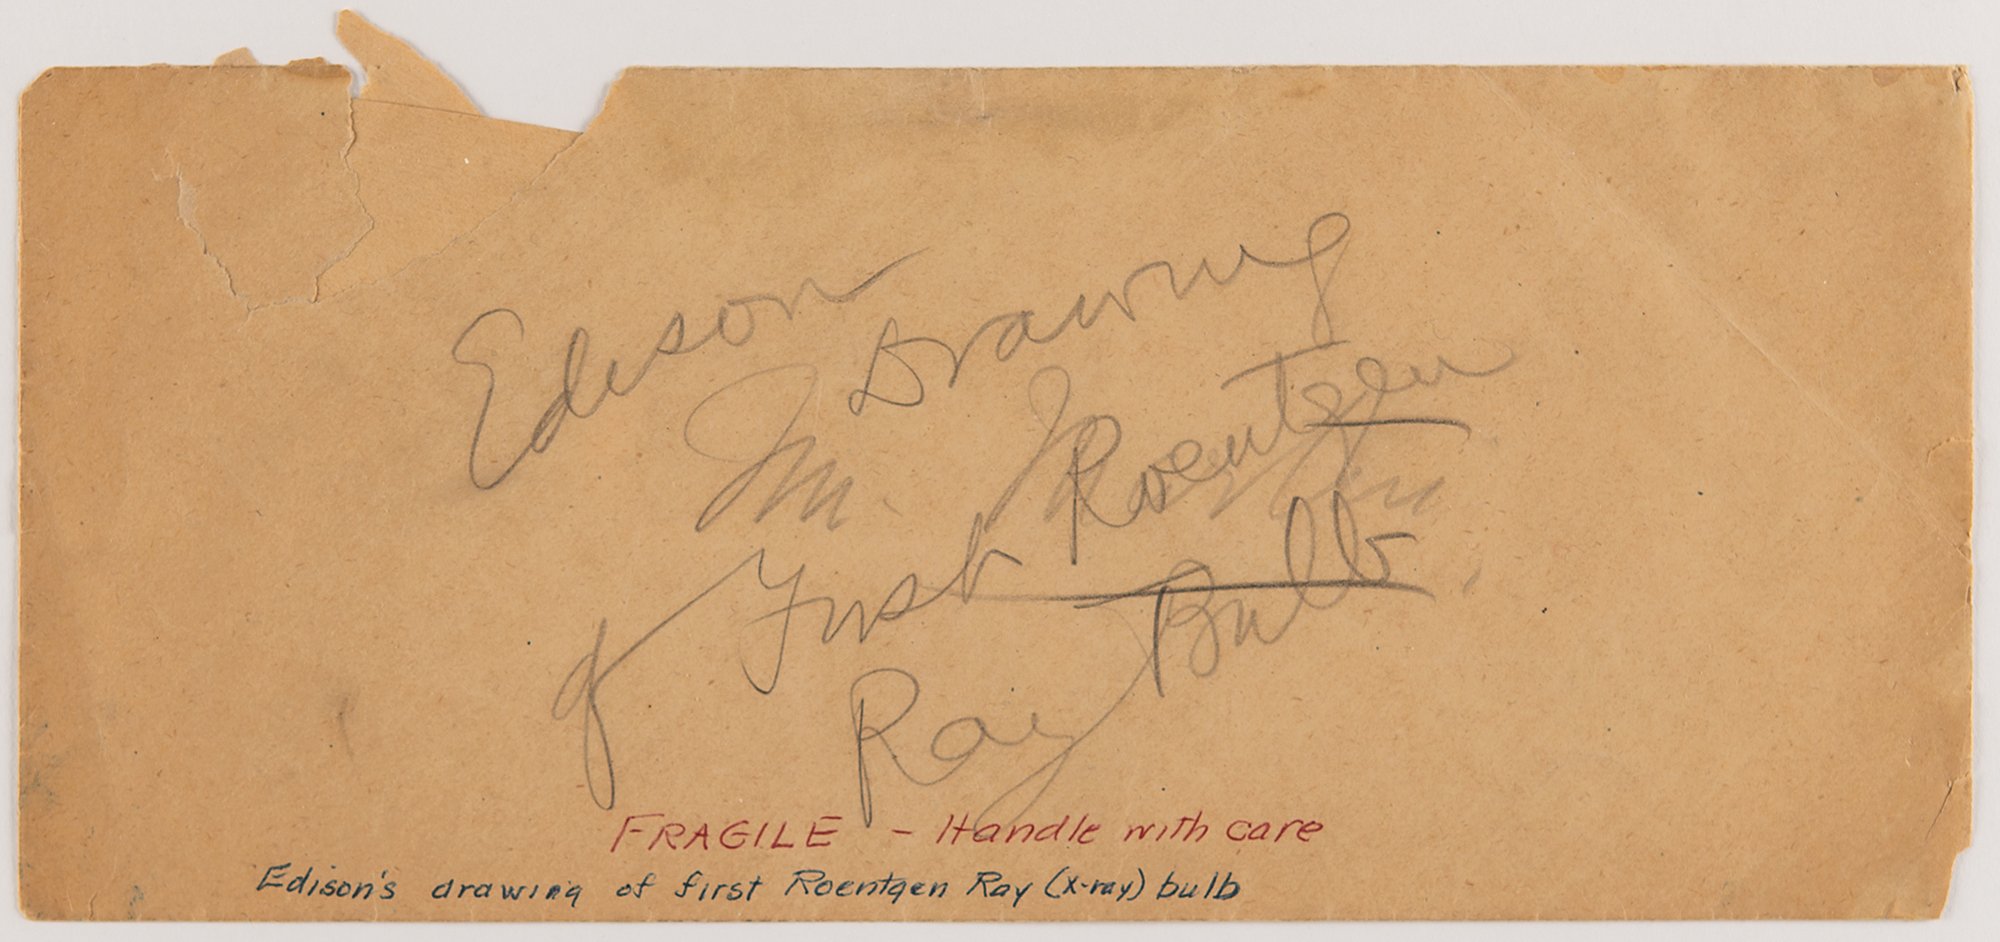 Edison Drawing
of First Roentgen
Ray Bulb
FRAGILE - Handle with care
Edison's drawing of first Roentgen Ray (X-ray) bulb